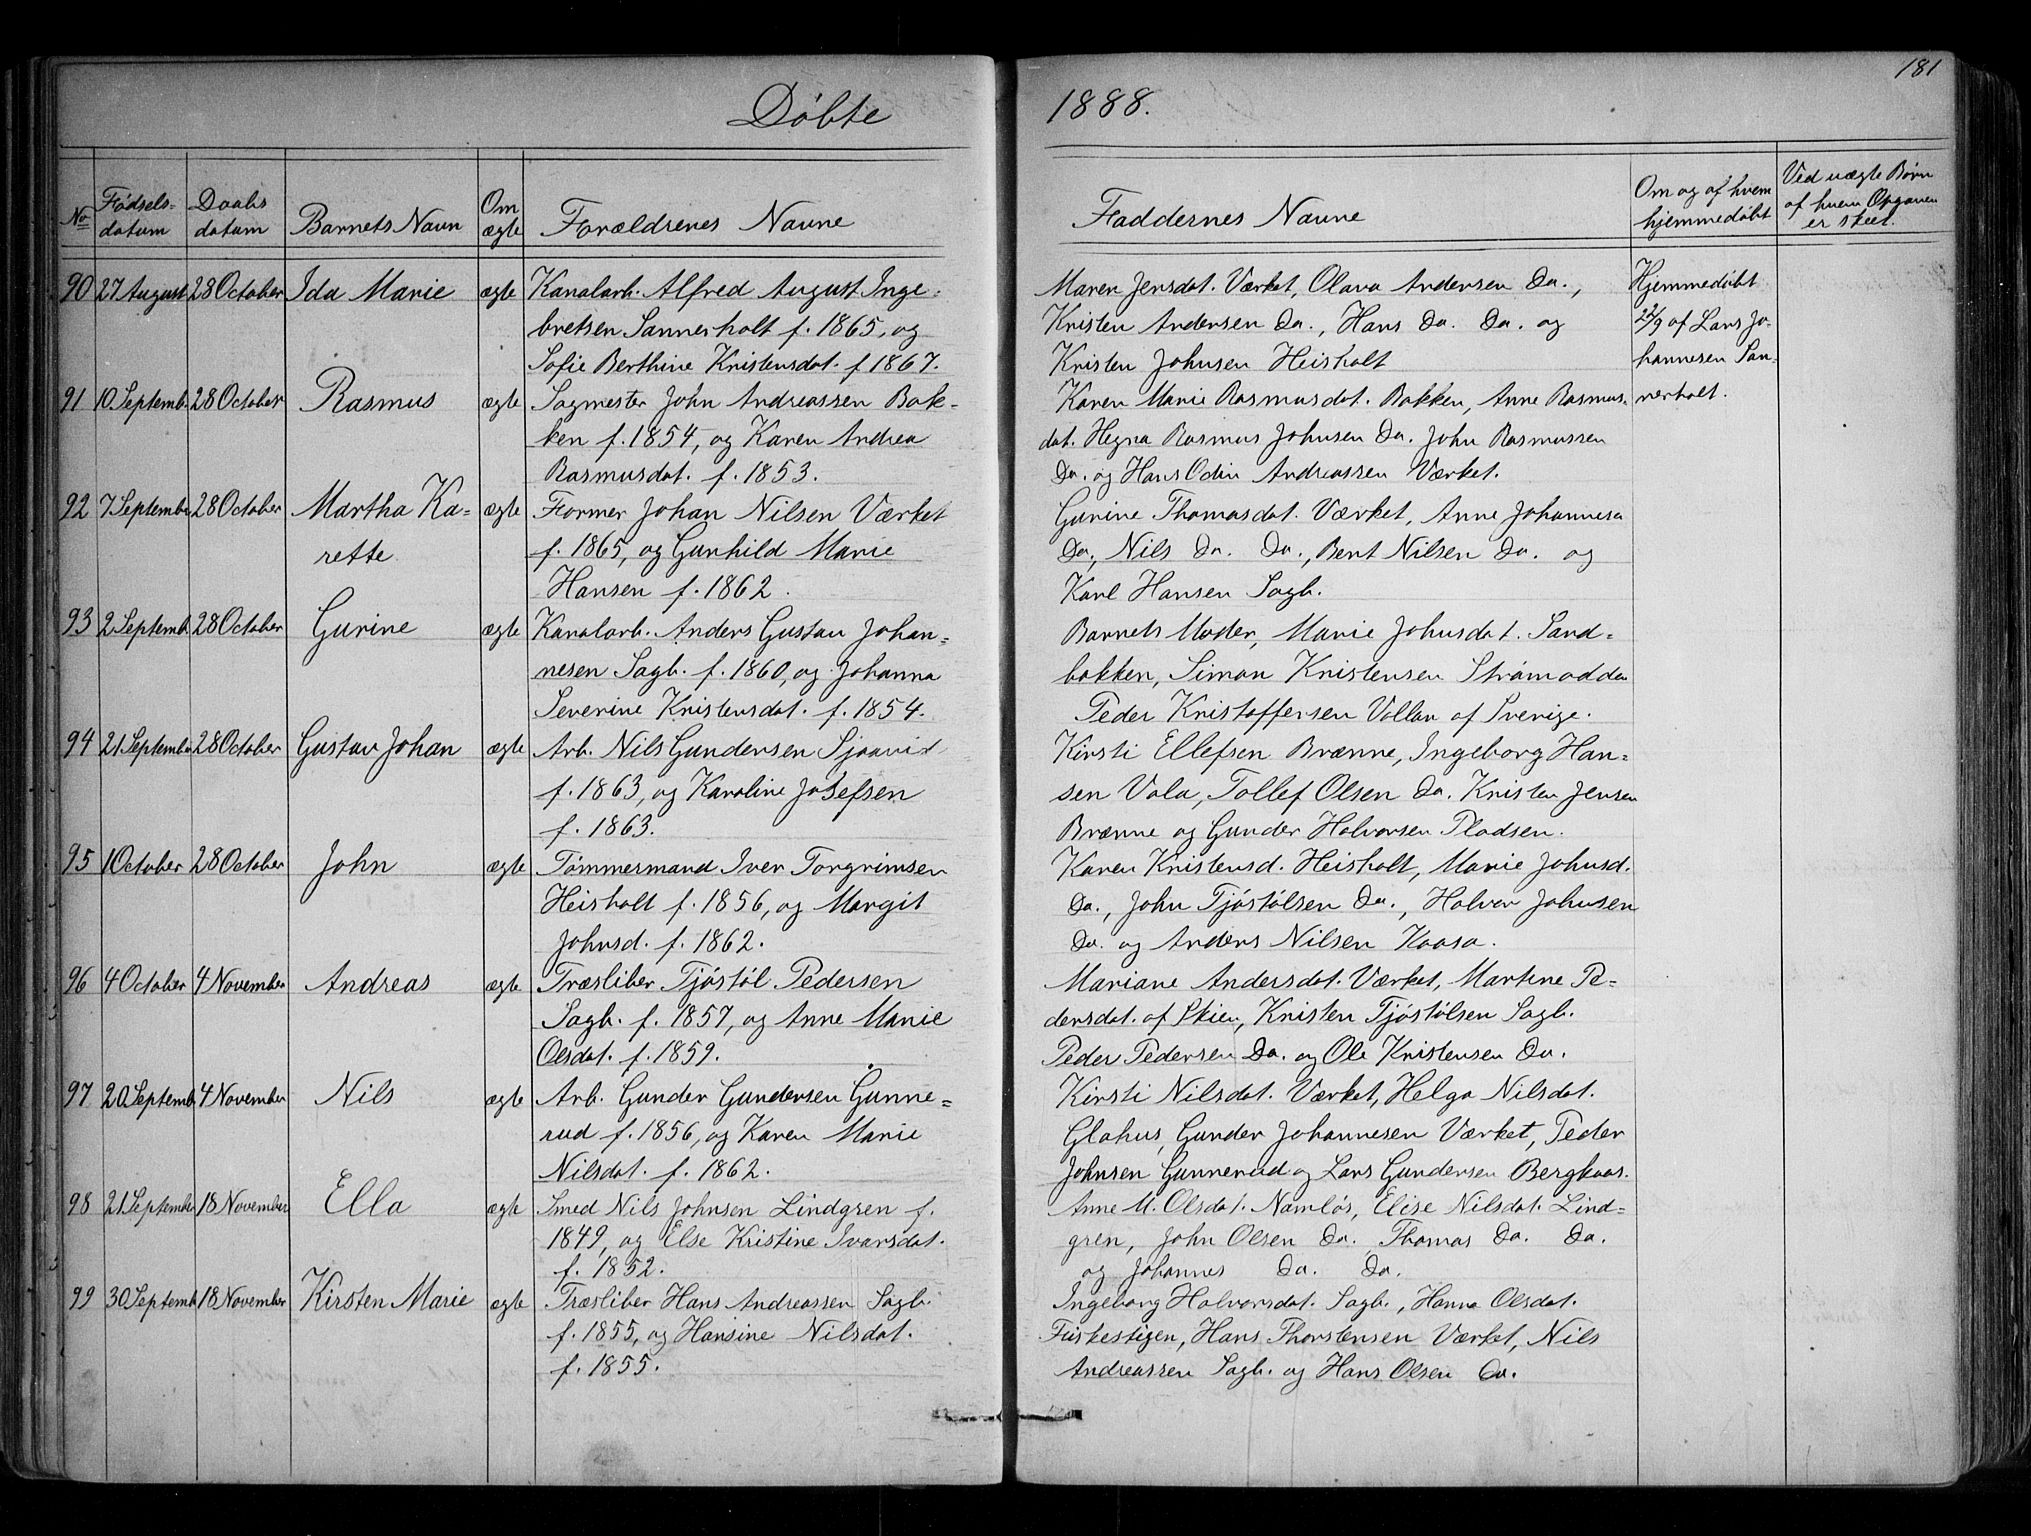 181
Døbte 1888.
No Fødsels-datum Daabsdatum Barnets Navn Om ægte Forældrenes Navne Faddernes Navne Om og af hvem hjemmedøbt Ved uægte Børn af hvem Opgaven er skeet.
90 27 August 28 October Ida Marie ægte Kanalarb. Alfred August Inge- Maren Jensdat. Værket, Olava Andersen Do., Hjemmedøbt
bretsen Sannerholt f. 1865, og Kristen Andersen Do., Hans Do. Do. og af Lars Jo-
Sofie Berthine Kristensdat. f 1867. Kristen Johnsen Heisholt hannesen San-
91 10 Septemb. 28 October Rasmus ægte Sagmester John Andreassen Bak- Karen Marie Rasmusdat. Bakken, Anne Rasmus- nerholt.
ken f. 1854, og Karen Andrea dat. Hegna Rasmus Johnsen Do. John Rasmussen
Rasmusdat. f. 1853. Do. og Hans Odin Andreassen Værket.
92 7 September 28 October Martha Ka- ægte Former Johan Nilsen Værket Gurine Thomasdat. Værket, Anne Johannesen
rette f. 1865, og Gunhild Marie Do., Nils Do. Do., Bent Nilsen Do. og
Hansen f. 1862. Karl Hansen Sagb.
93 2 Septemb. 28 October Gurine ægte Kanalarb. Anders Gustav Johan- Barnets Moder, Marie Johnsdat. Sand-
nesen Sagb. f. 1860, og Johanna bakken, Simon Kristensen Strømodden
Severine Kristensdat. f. 1854. Peder Kristoffersen Vollan af Sverige.
94 21 September 28 October Gustav Johan ægte Arb. Nils Gundersen Kirsti Ellefsen Brænne, Ingeborg Han-
f. 1863, og Karoline Josefsen sen Vala, Tollef Olsen Do. Kristen Jensen
f. 1863. Brænne og Gunder Halvorsen Pladsen.
95 1 October 28 October John ægte Tømmermand Iver Torgrimsen Karen Kristensd. Heisholt, Marie Johnsd.
Heisholt f. 1856, og Margit Do., John Tjøstølsen Do., Halvor Johnsen
Johnsd. f. 1862. Do. og Anders Nilsen Kaasa.
96 4 October 4 November Andreas ægte Træsliber Tjøstøl Pedersen Mariane Andersdat. Værket, Martine Pe-
Sagb. f. 1857, og Anne Marie dersdat. af Skien, Kristen Tjøstølsen Sagb.
Olsdat. f. 1859. Peder Pedersen Do. og Ole Kristensen Do.
97 20 Septemb 4 November Nils ægte Arb. Gunder Gundersen Gunne- Kirsti Nilsdat. Værket, Helga Nilsdat.
rud f. 1856, og Karen Marie Glahus, Gunder Johannesen Værket, Peder
Nilsdat. f. 1862. Johnsen Gunnerud og Lars Gundersen Bergkaas.
98 21 September 18 November Ella ægte Smed Nils Johnsen Lindgren f. Anne M. Olsdat. Namløs, Elise Nilsdat. Lind-
1849, og Else Kristine Ivarsdat. gren, John Olsen Do. Thomas Do. Do.
f. 1852. og Johannes Do. Do.
99 30 Septemb 18 November Kirsten Marie ægte Træsliber Hans Andreassen Sagb. Ingeborg Halvorsdat. Sagb., Hanna Olsdat.
f. 1855, og Hansine Nilsdat. Fiskestigen, Hans Thorstensen Værket, Nils
f. 1855. Andreassen Sagb. og Hans Olsen Do.